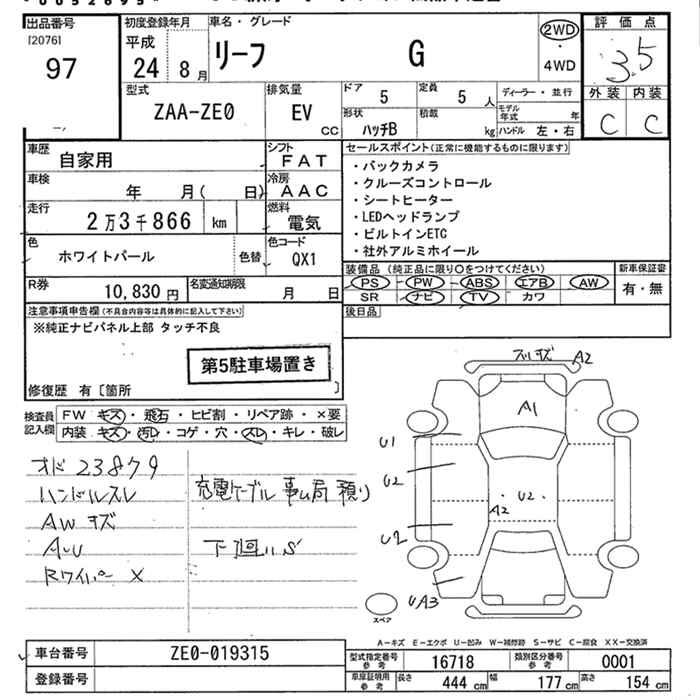 出品番号
[20761
97
初度登録年月
平成
24 8月
車名・グレード
リーフ G
2WD
・
4WD
評価点
3.5
外装 内装
C C
型式
ZAA-ZE0
排気量
EV
CC
ドア 5
定員 5 人
ディーラー・並行
形状 ハッチB
積載 kg
モデル年式 年
ハンドル 左・右
車歴 自家用
シフト FAT
車検 年 月( 日)
冷房 AAC
走行 2万3千866 km
燃料 電気
色 ホワイトパール 色替
色コード QX1
R券 10,830円
名変通知期限 月 日
セールスポイント(正常に機能するものに限ります)
・バックカメラ
・クルーズコントロール
・シートヒーター
・LEDヘッドランプ
・ビルトインETC
・社外アルミホイール
装備品(純正品に限り○をつけてください)
PS PW ABS エアB AW
SR ナビ TV カワ
新車保証書
有・無
後日品
注意事項申告欄(不具合内容等は具体的に記入して下さい)
※純正ナビパネル上部 タッチ不良
第5駐車場置き
修復歴 有[箇所 ]
検査員記入欄
FW キズ・飛石・ヒビ割・リペア跡・×要
内装 キズ・汚レ・コゲ・穴・スレ・キレ・破レ
オド 23879
ハンドルスレ
AW キズ
AーU
Rワイパー ×
充電ケーブル 事ム局 預り
下廻りS
キズ A2
A1
U1
U2
U2
A2
U2
UA3
スペア
A-キズ E-エクボ U-凹み W-補修跡 S-サビ C-腐食 XX-交換済
車台番号 ZE0-019315
登録番号
型式指定番号 参考 16718
類別区分番号 参考 0001
車庫証明用 参考 長さ 444cm 幅 177cm 高さ 154cm